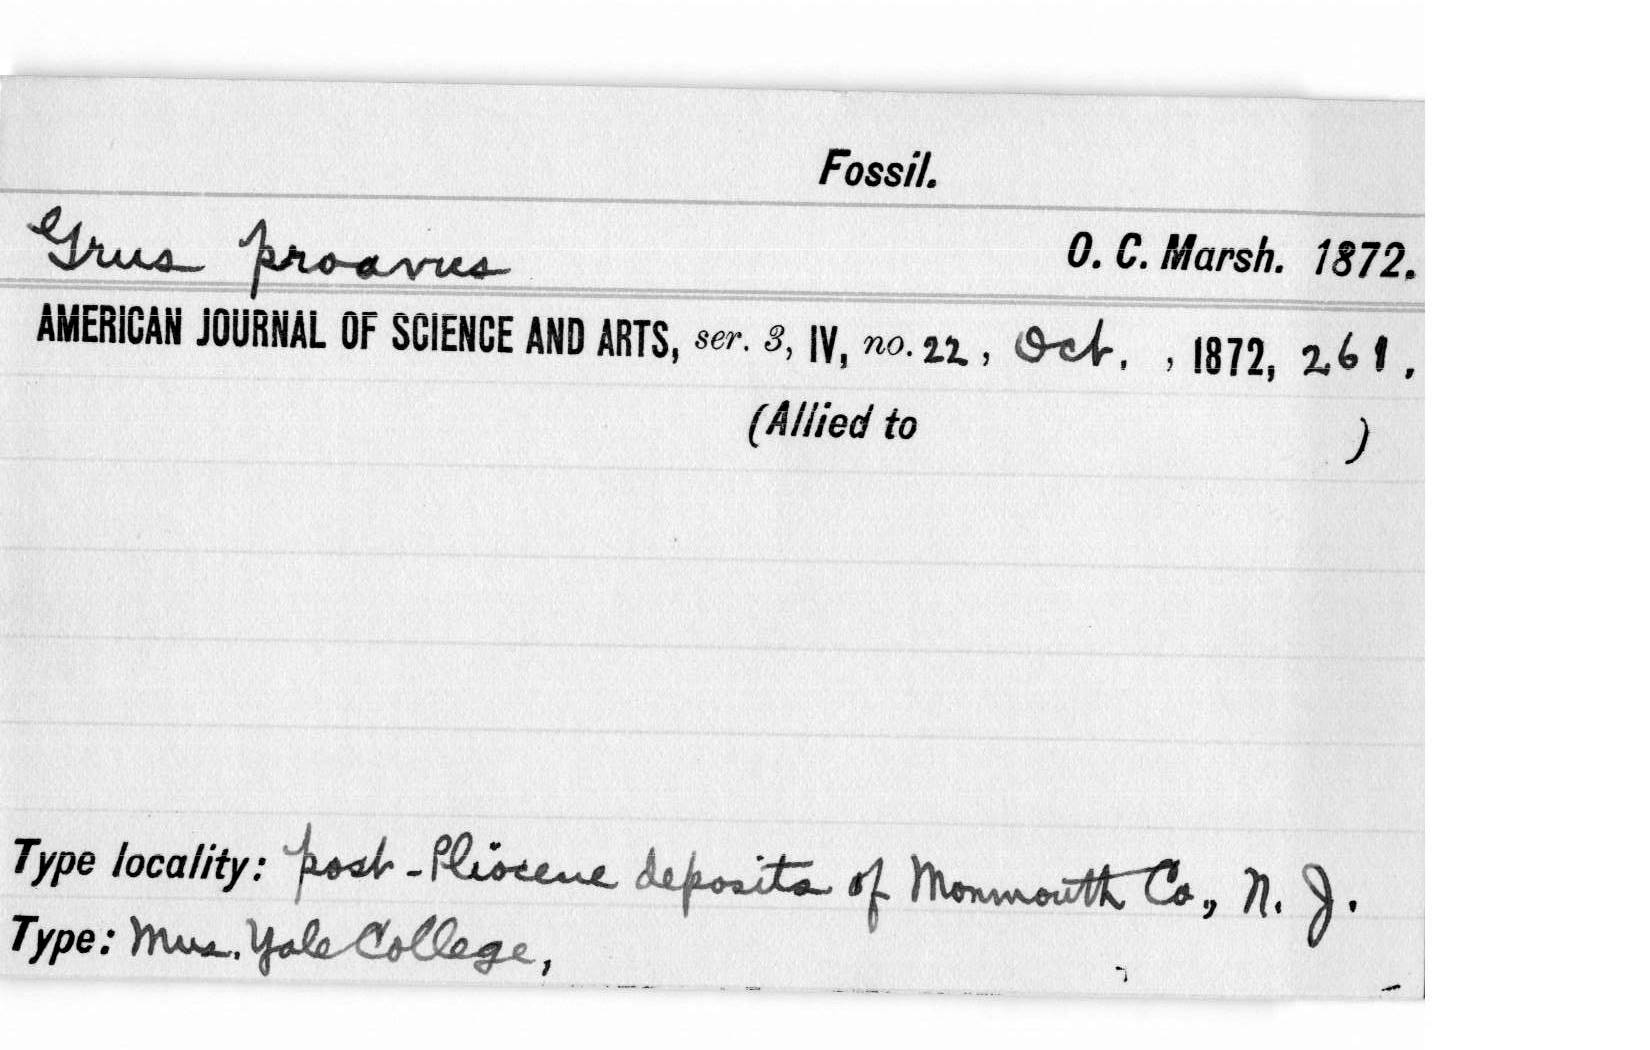 Fossil.
Grus proavus O. C. Marsh. 1872.
AMERICAN JOURNAL OF SCIENCE AND ARTS, ser. 3, IV, no. 22, Oct. , 1872, 261.
(Allied to )
Type locality: post-Pliocene deposits of Monmouth Co., N. J.
Type: Mus. Yale College,